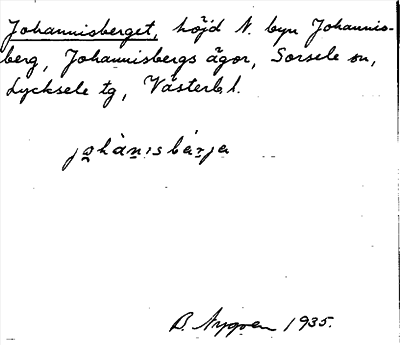 Johannisberget, höjd N. byn Johannis-
berg, Johannisbergs ägor, Sorsele sn,
Lycksele tg, Västerb l.
johànisbárja
B. Nygren 1935.